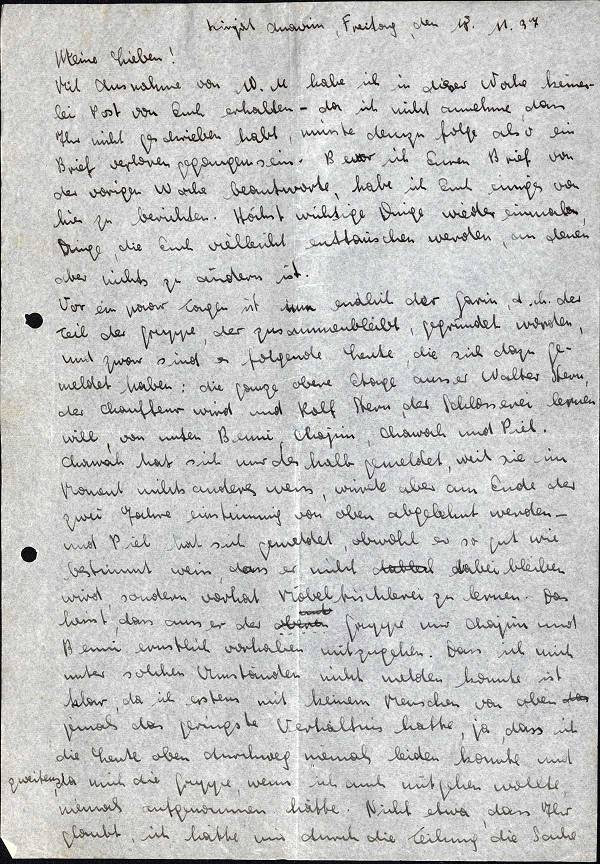 Kirjat Anavim, Freitag, den 18. 11. 37
Meine Lieben!
Mit Ausnahme von W. M habe ich in dieser Woche keiner-
lei Post von Euch erhalten – da ich nicht annehme, dass
Ihr nicht geschrieben habt, müsste demzufolge also ein
Brief verloren gegangen sein. Bevor ich Euren Brief von
der vorigen Woche beantworte, habe ich Euch einiges von
hier zu berichten. Höchst wichtige Dinge wieder einmal,
Dinge, die Euch vielleicht enttäuschen werden, an denen
aber nichts zu ändern ist.
Vor ein paar Tagen ist endlich der Garin, d. h. der
Teil der Gruppe, der zusammenbleibt, gegründet worden,
und zwar sind es folgende Leute, die sich dazu ge-
meldet haben: die ganze obere Etage ausser Walter Stern,
der Chauffeur wird und Rolf Stern der Schlosserei lernen
will, von unten Benni, Chajim, Chawah und Piel.
Chawah hat sich nur deshalb gemeldet, weil sie im
Moment nichts anderes weiss, würde aber am Ende der
zwei Jahre einstimmig von oben abgelehnt werden –
und Piel hat sich gemeldet, obwohl er so gut wie
bestimmt weiss, dass er nicht dabei bleiben
wird sondern vorhat Möbeltischlerei zu lernen. Das
heisst, dass ausser der oberen Gruppe nur Chajim und
Benni ernstlich vorhaben mitzugehen. Dass ich mich
unter solchen Umständen nicht melden konnte ist
klar, da ich erstens mit keinem Menschen von oben
jemals das geringste Verhältnis hatte, ja, dass ich
die Leute oben durchweg niemals leiden konnte und
zweitens da mich die Gruppe, wenn ich auch mitgehen wollte,
niemals aufgenommen hätte. Nicht etwa, dass Ihr
glaubt, ich hätte mir durch die Teilung die Sache